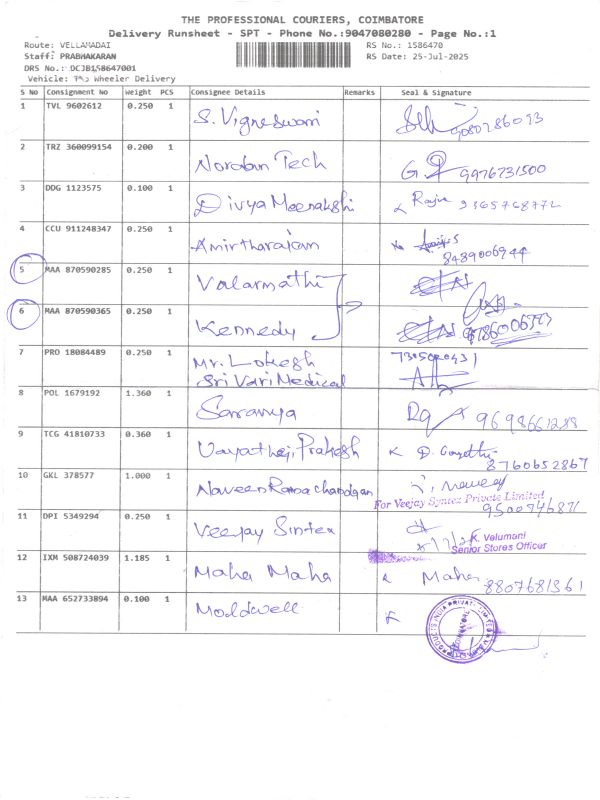 THE PROFESSIONAL COURIERS, COIMBATORE
Delivery Runsheet - SPT - Phone No.:9047080280 - Page No.:1
Route: VELLAMADAI RS No.: 1586470
Staff: PRABHAKARAN RS Date: 25-Jul-2025
DRS No.: DCJB158647001
Vehicle: Two Wheeler Delivery
S No Consignment No Weight PCS Consignee Details Remarks Seal & Signature
1 TVL 9602612 0.250 1 S. Vigneswari 9080286093
2 TRZ 360099154 0.200 1 Tech 9976231500
3 DDG 1123575 0.100 1 Divya Meenakshi Raju
4 CCU 911248347 0.250 1 Amirtharajan
8489006944
5 MAA 870590285 0.250 1 Valarmathi
6 MAA 870590365 0.250 1 Kennedy
7 PRO 18084489 0.250 1 Mr. Lokesh
Sri Vari Medical
8 POL 1679192 1.360 1 Saranya
9 TCG 41810733 0.360 1 Prakash
8760652867
10 GKL 378577 1.000 1 Naveen Ramachandran
For Veejay Syntex Private Limited
9500746871
11 DPI 5349294 0.250 1 Veejay Sintex
K. Velumani
Senior Stores Officer
12 IXM 508724039 1.185 1 Maha Maha Maha
8807681361
13 MAA 652733894 0.100 1 Moldwell